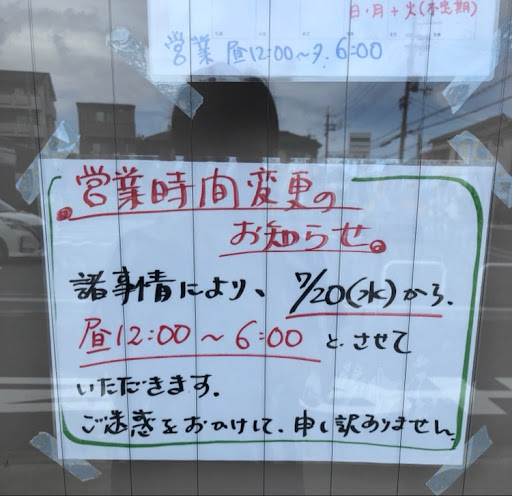 日・月+火(不定期)
営業 昼12:00~夕.6:00
営業時間変更の
お知らせ。
諸事情により、7/20(水)から.
昼12:00~6:00 とさせて
いただきます.
ご迷惑をおかけして、申し訳ありません。